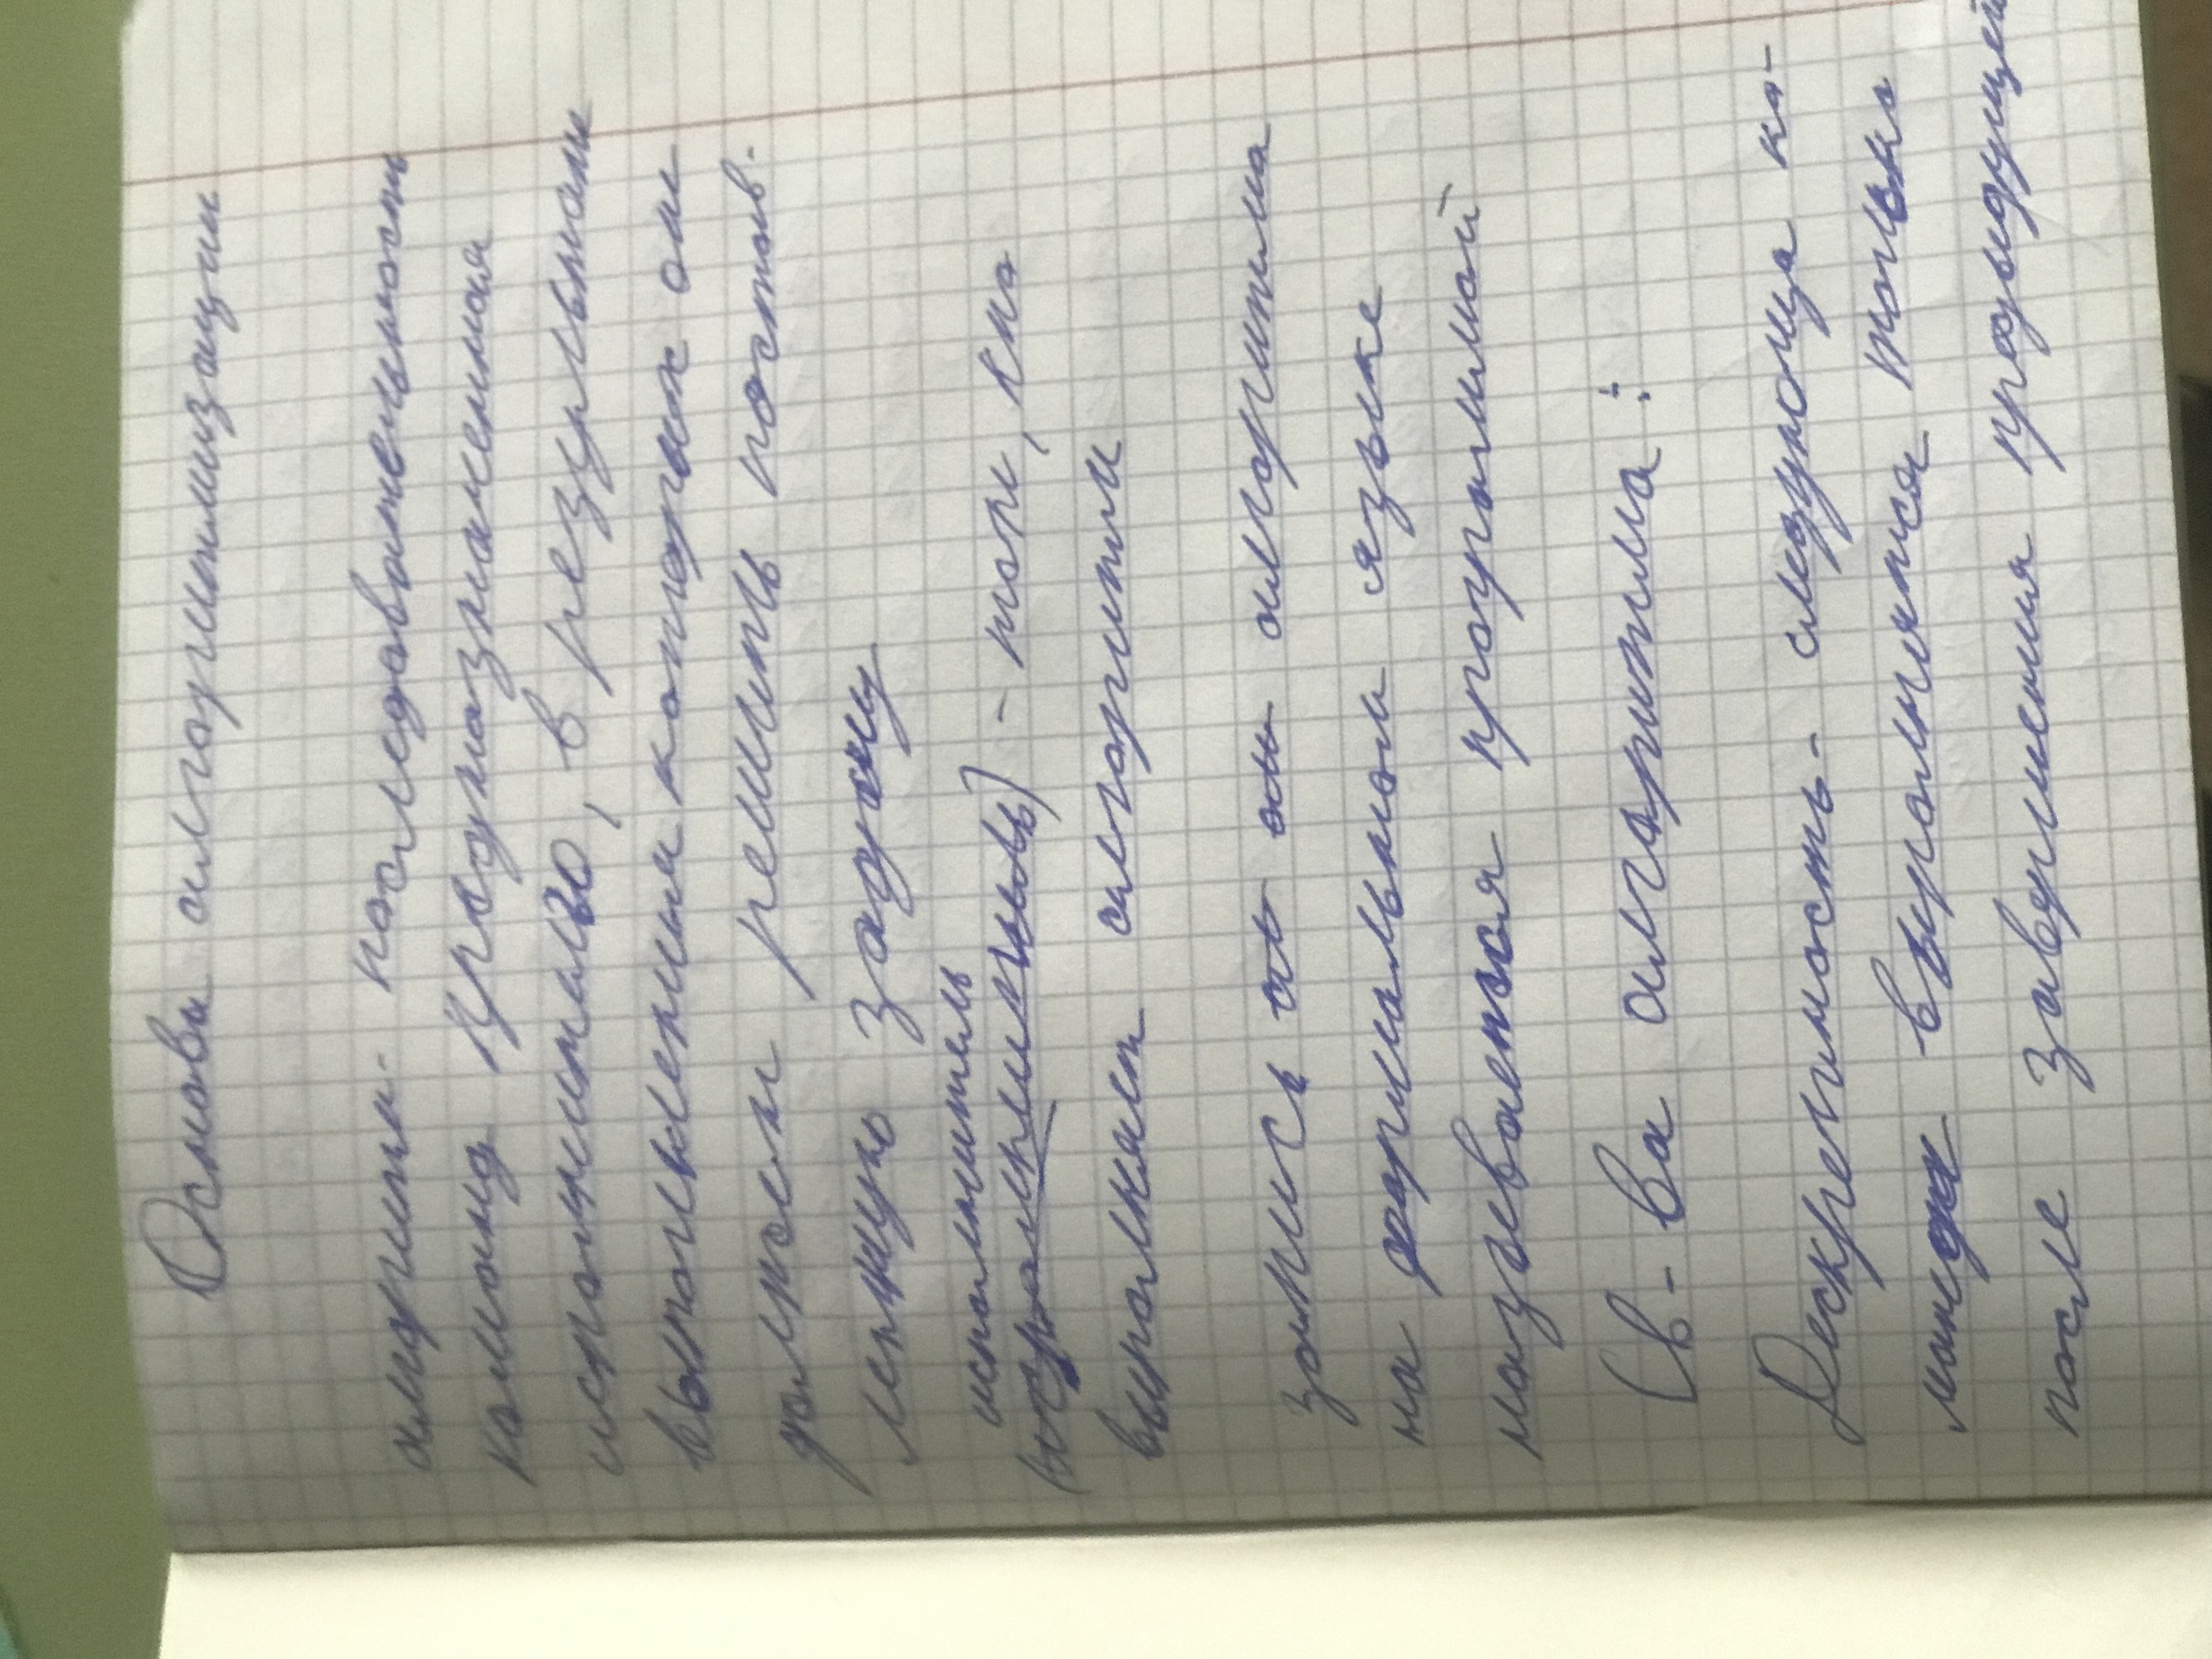 Основы алгоритмизации
алгоритм - последовательность
команд предназначенная
исполнителю, в результате
выполнения которых он
должен решить постав-
ленную задачу
исполнитель
(исполнитель) - тот, кто
выполняет алгоритм
запись ал ал алгоритма
на формальном языке
называется программой
Св-ва алгоритма:
Дескретность - следующа ко-
манда выполнятся только
после завершения предыдущей